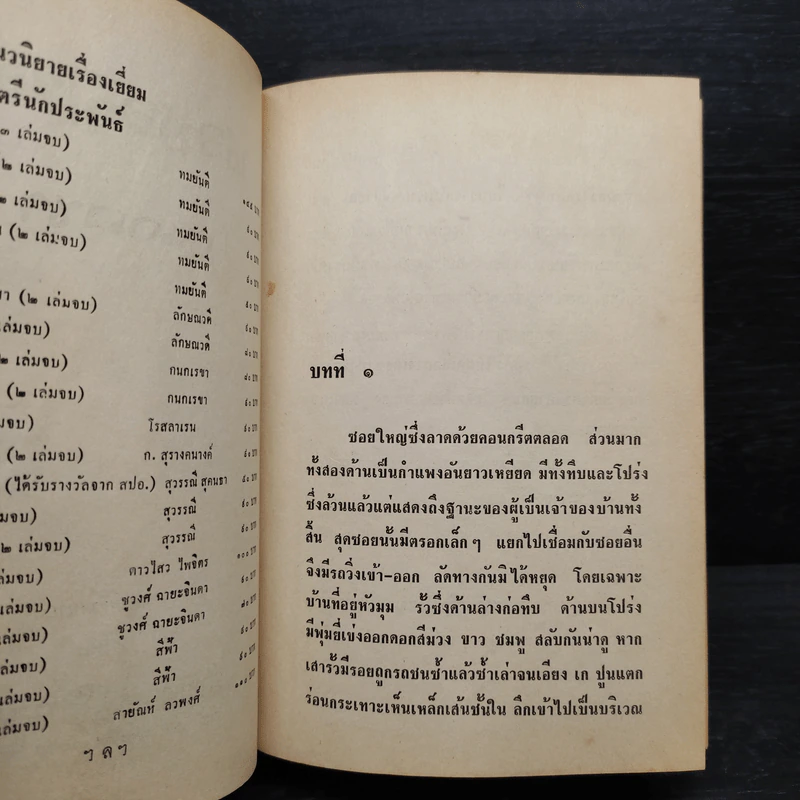 นวนิยายเรื่องเยี่ยม
ตรีนักประพันธ์
๓ เล่มจบ)
๒ เล่มจบ) ทมยันตี
๒ เล่มจบ) ทมยันตี
(๒ เล่มจบ) ทมยันตี
ทมยันตี
(๒ เล่มจบ) ทมยันตี
เล่มจบ) ลักษณวดี
๒ เล่มจบ) ลักษณวดี
(๒ เล่มจบ) กนกเรขา
เล่มจบ) กนกเรขา
(๒ เล่มจบ) โรสลาเรน
(ได้รับรางวัลจาก สปอ.) ก. สุรางคนางค์
เล่มจบ) สุวรรณี สุคนธา
๒ เล่มจบ) สุวรรณี
เล่มจบ) สุวรรณี
เล่มจบ) ดาวไสว ไพจิตร
เล่มจบ) ชูวงศ์ ฉายะจินดา
เล่มจบ) ชูวงศ์ ฉายะจินดา
เล่มจบ) สีฟ้า
สีฟ้า
สายัณห์ ลวพงศ์
ๆ ล ๆ
บทที่ ๑
ซอยใหญ่ซึ่งลาดด้วยคอนกรีตตลอด ส่วนมาก
ทั้งสองด้านเป็นกำแพงอันยาวเหยียด มีทั้งทึบและโปร่ง
ซึ่งล้วนแล้วแต่แสดงถึงฐานะของผู้เป็นเจ้าของบ้านทั้ง
สิ้น สุดซอยนั้นมีตรอกเล็กๆ แยกไปเชื่อมกับซอยอื่น
จึงมีรถวิ่งเข้า-ออก ลัดทางกันมิได้หยุด โดยเฉพาะ
บ้านที่อยู่หัวมุม รั้วซึ่งด้านล่างก่อทึบ ด้านบนโปร่ง
มีพุ่มยี่เข่งออกดอกสีม่วง ขาว ชมพู สลับกันน่าดู หาก
เสารั้วมีรอยถูกรถชนซ้ำแล้วซ้ำเล่าจนเอียง เก ปูนแตก
ร่อนกระเทาะเห็นเหล็กเส้นชั้นใน ลึกเข้าไปเป็นบริเวณ